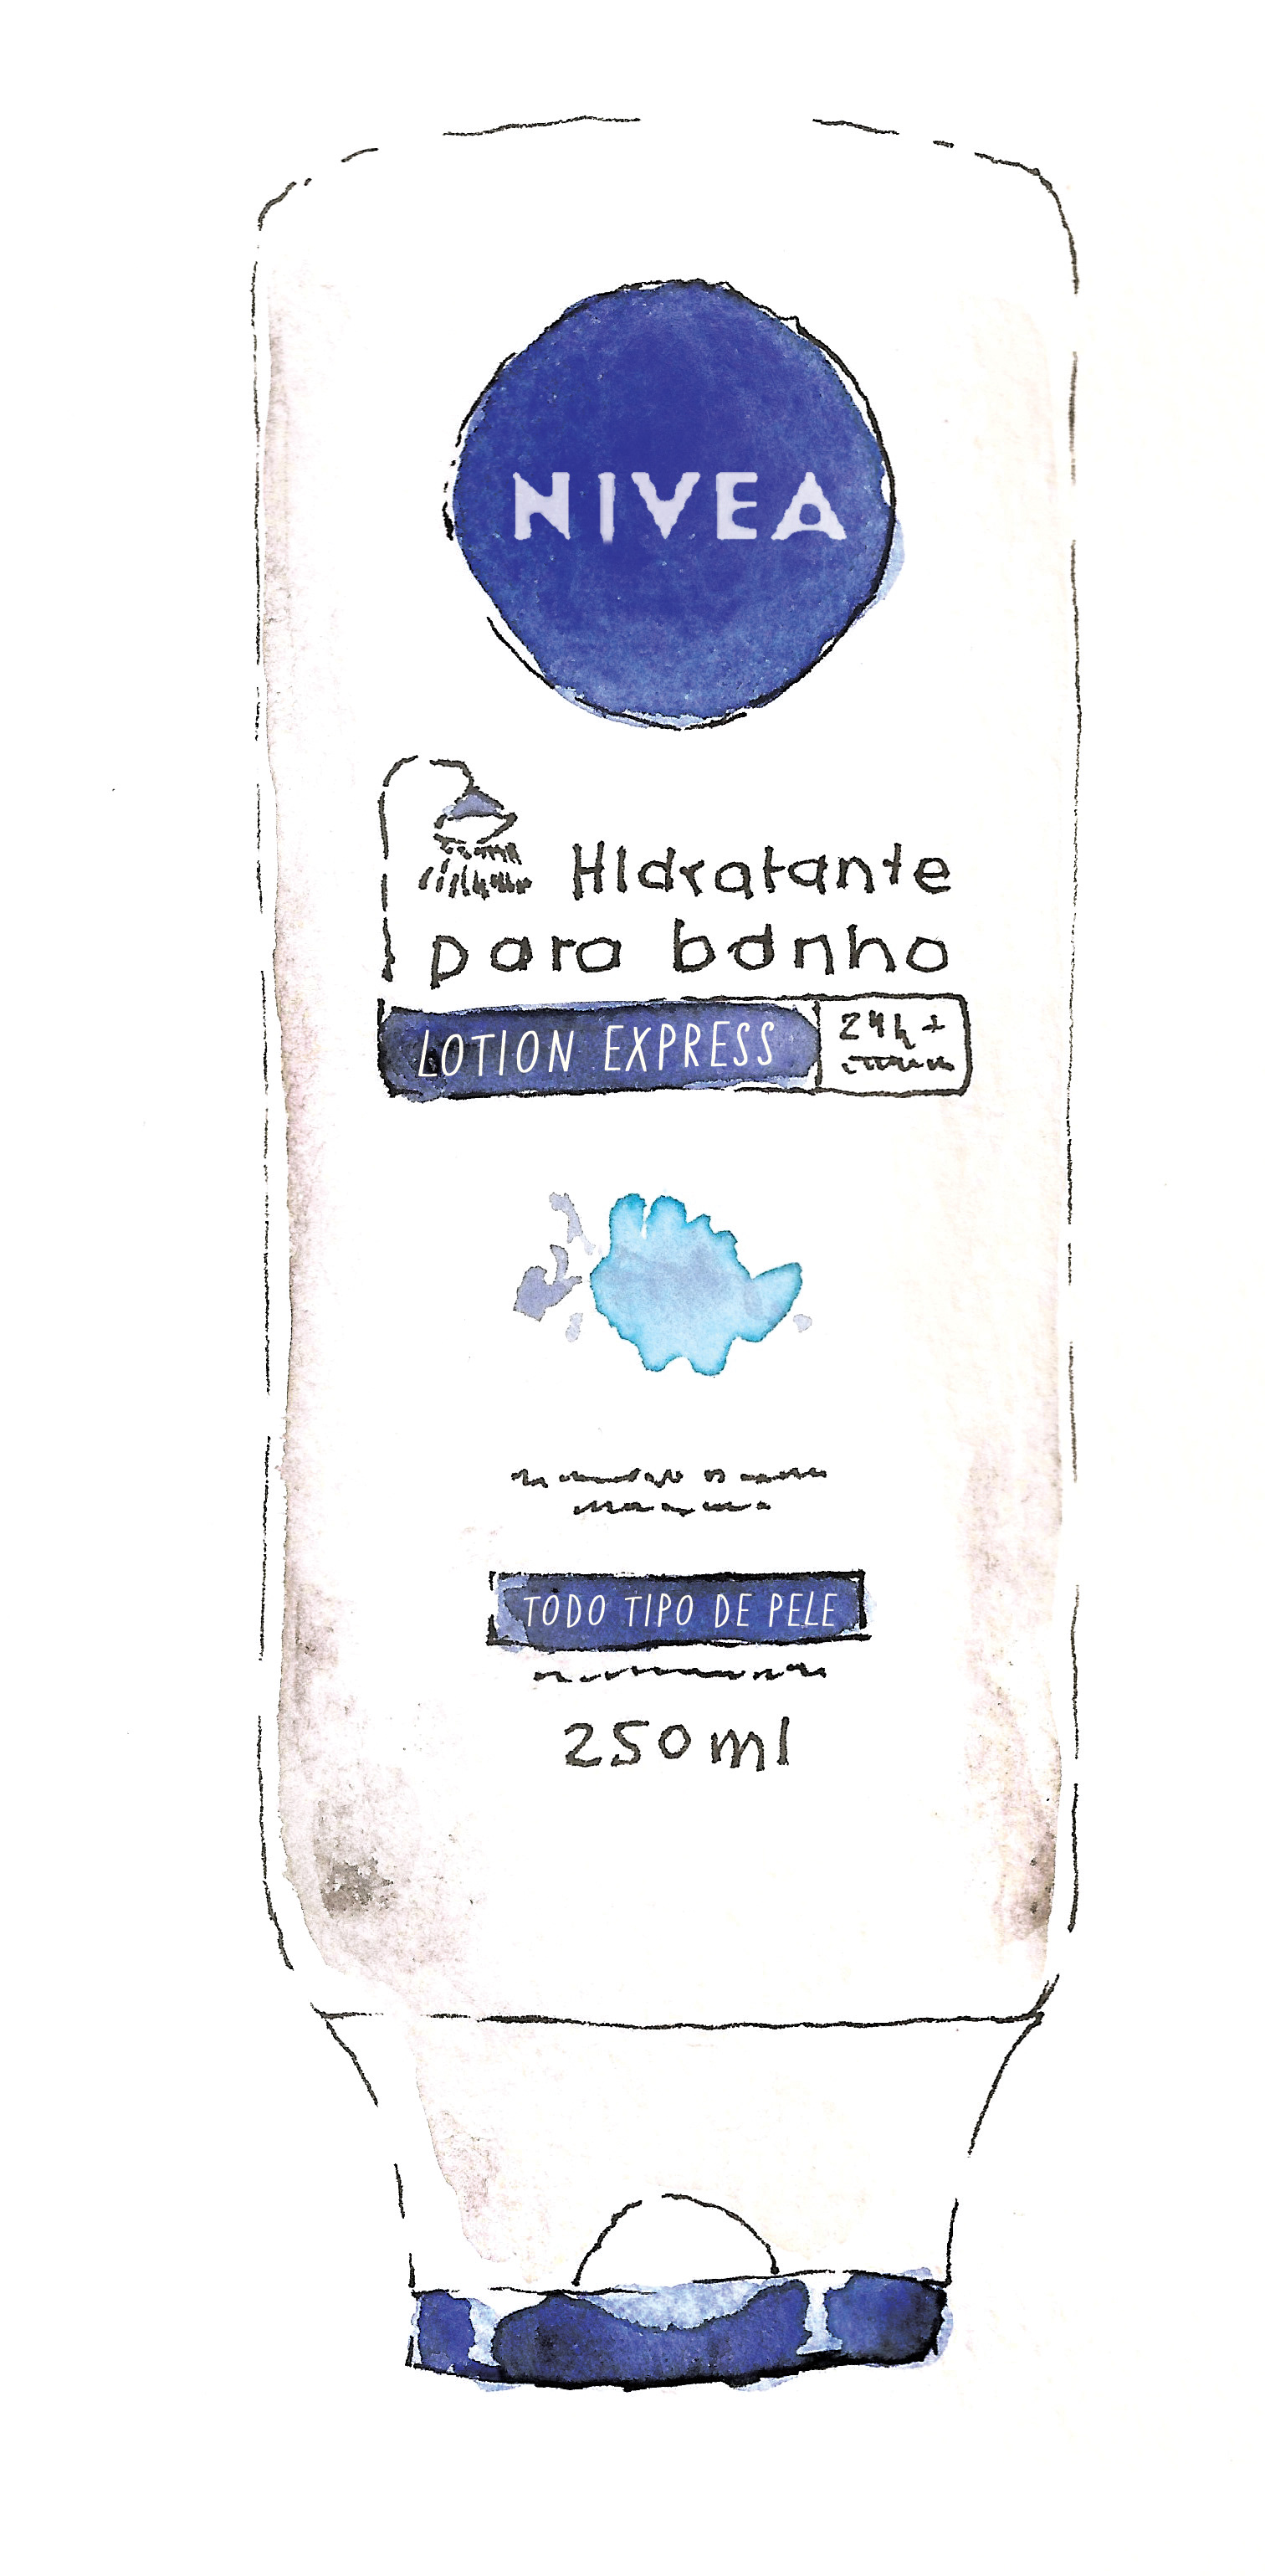 NIVEA
HIdratante
para banho
LOTION EXPRESS
24h+
TODO TIPO DE PELE
250ml